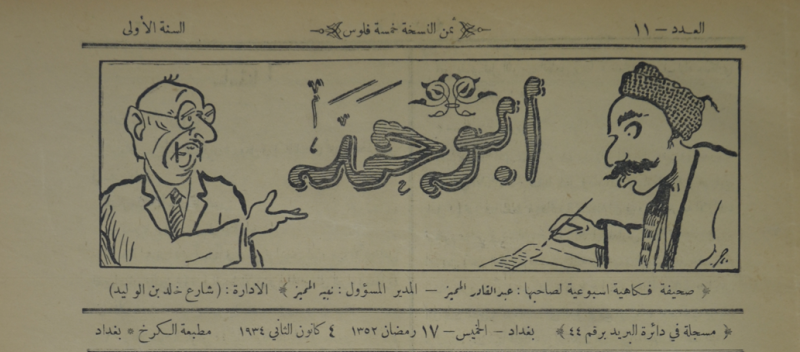 العدد - ١١ ثمن النسخة خمسة فلوس السنة الأولى
ابو حمد
صحيفة فكاهية اسبوعية لصاحبها: عبدالقادر المميز - المدير المسؤول: نبيه المميز الادارة: (شارع خالد بن الوليد)
مسجلة في دائرة البريد برقم ٤٤ بغداد - الخميس - ١٧ رمضان ١٣٥٢ ٤ كانون الثاني ١٩٣٤ مطبعة الكرخ * بغداد